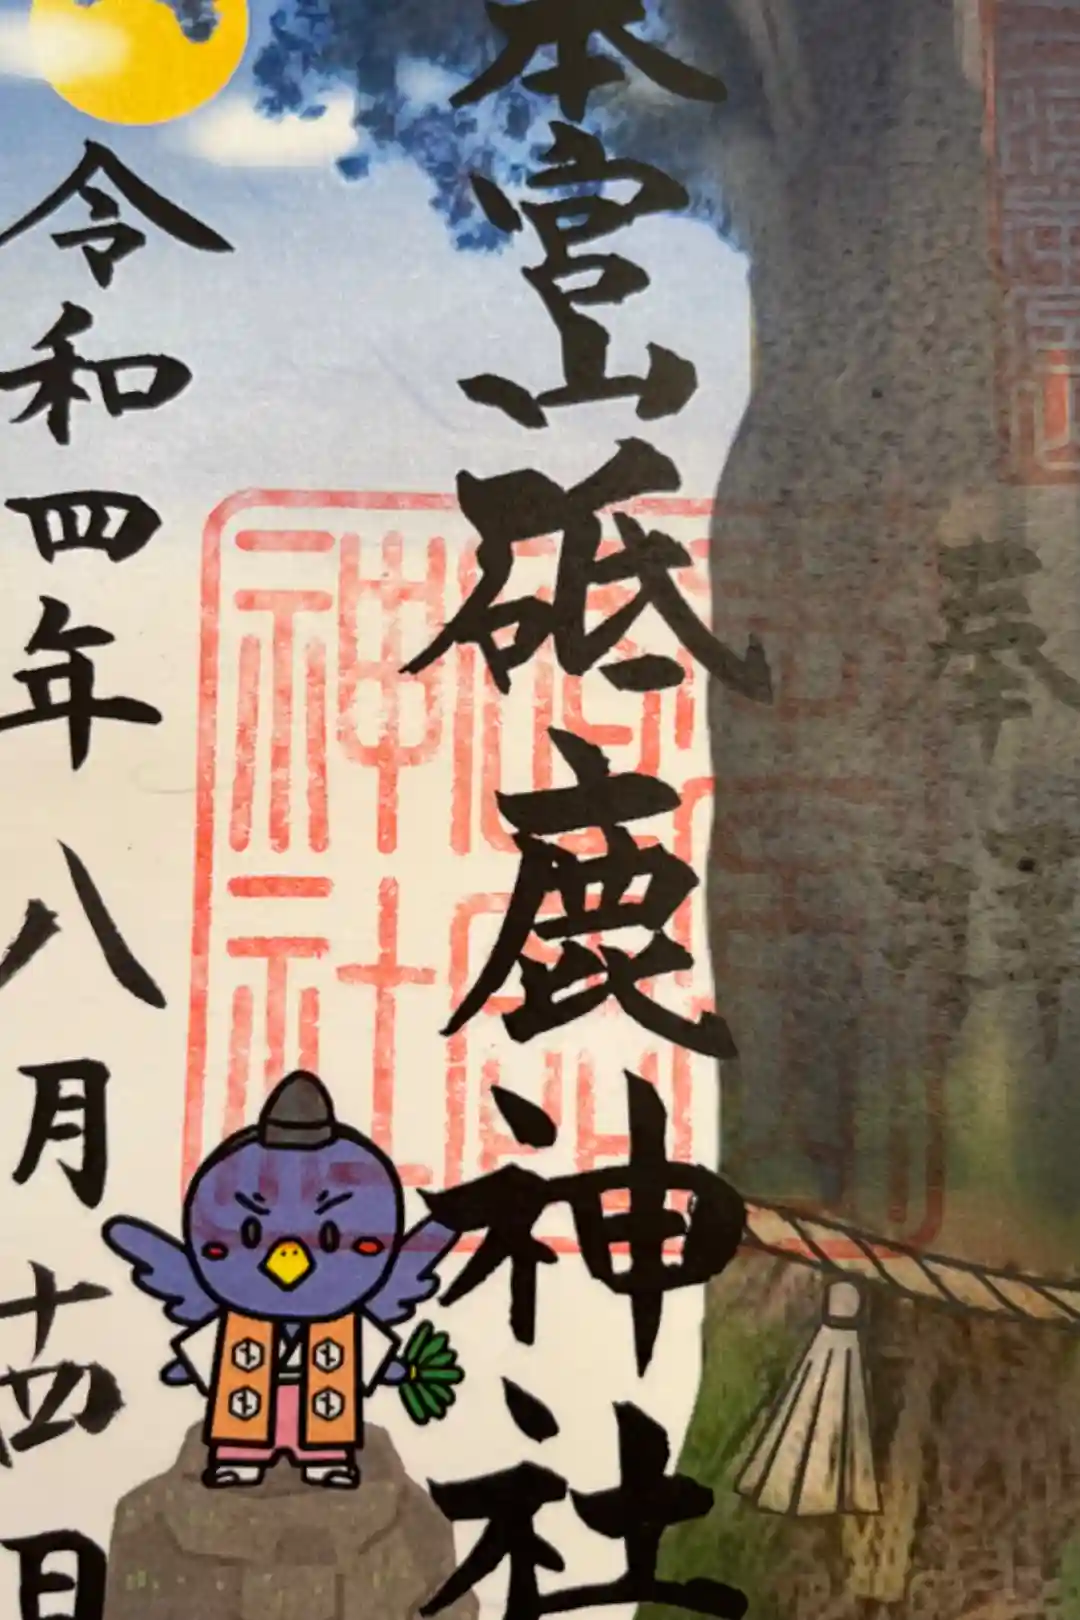 奉拝
本宮山砥鹿神社
令和四年八月十四日